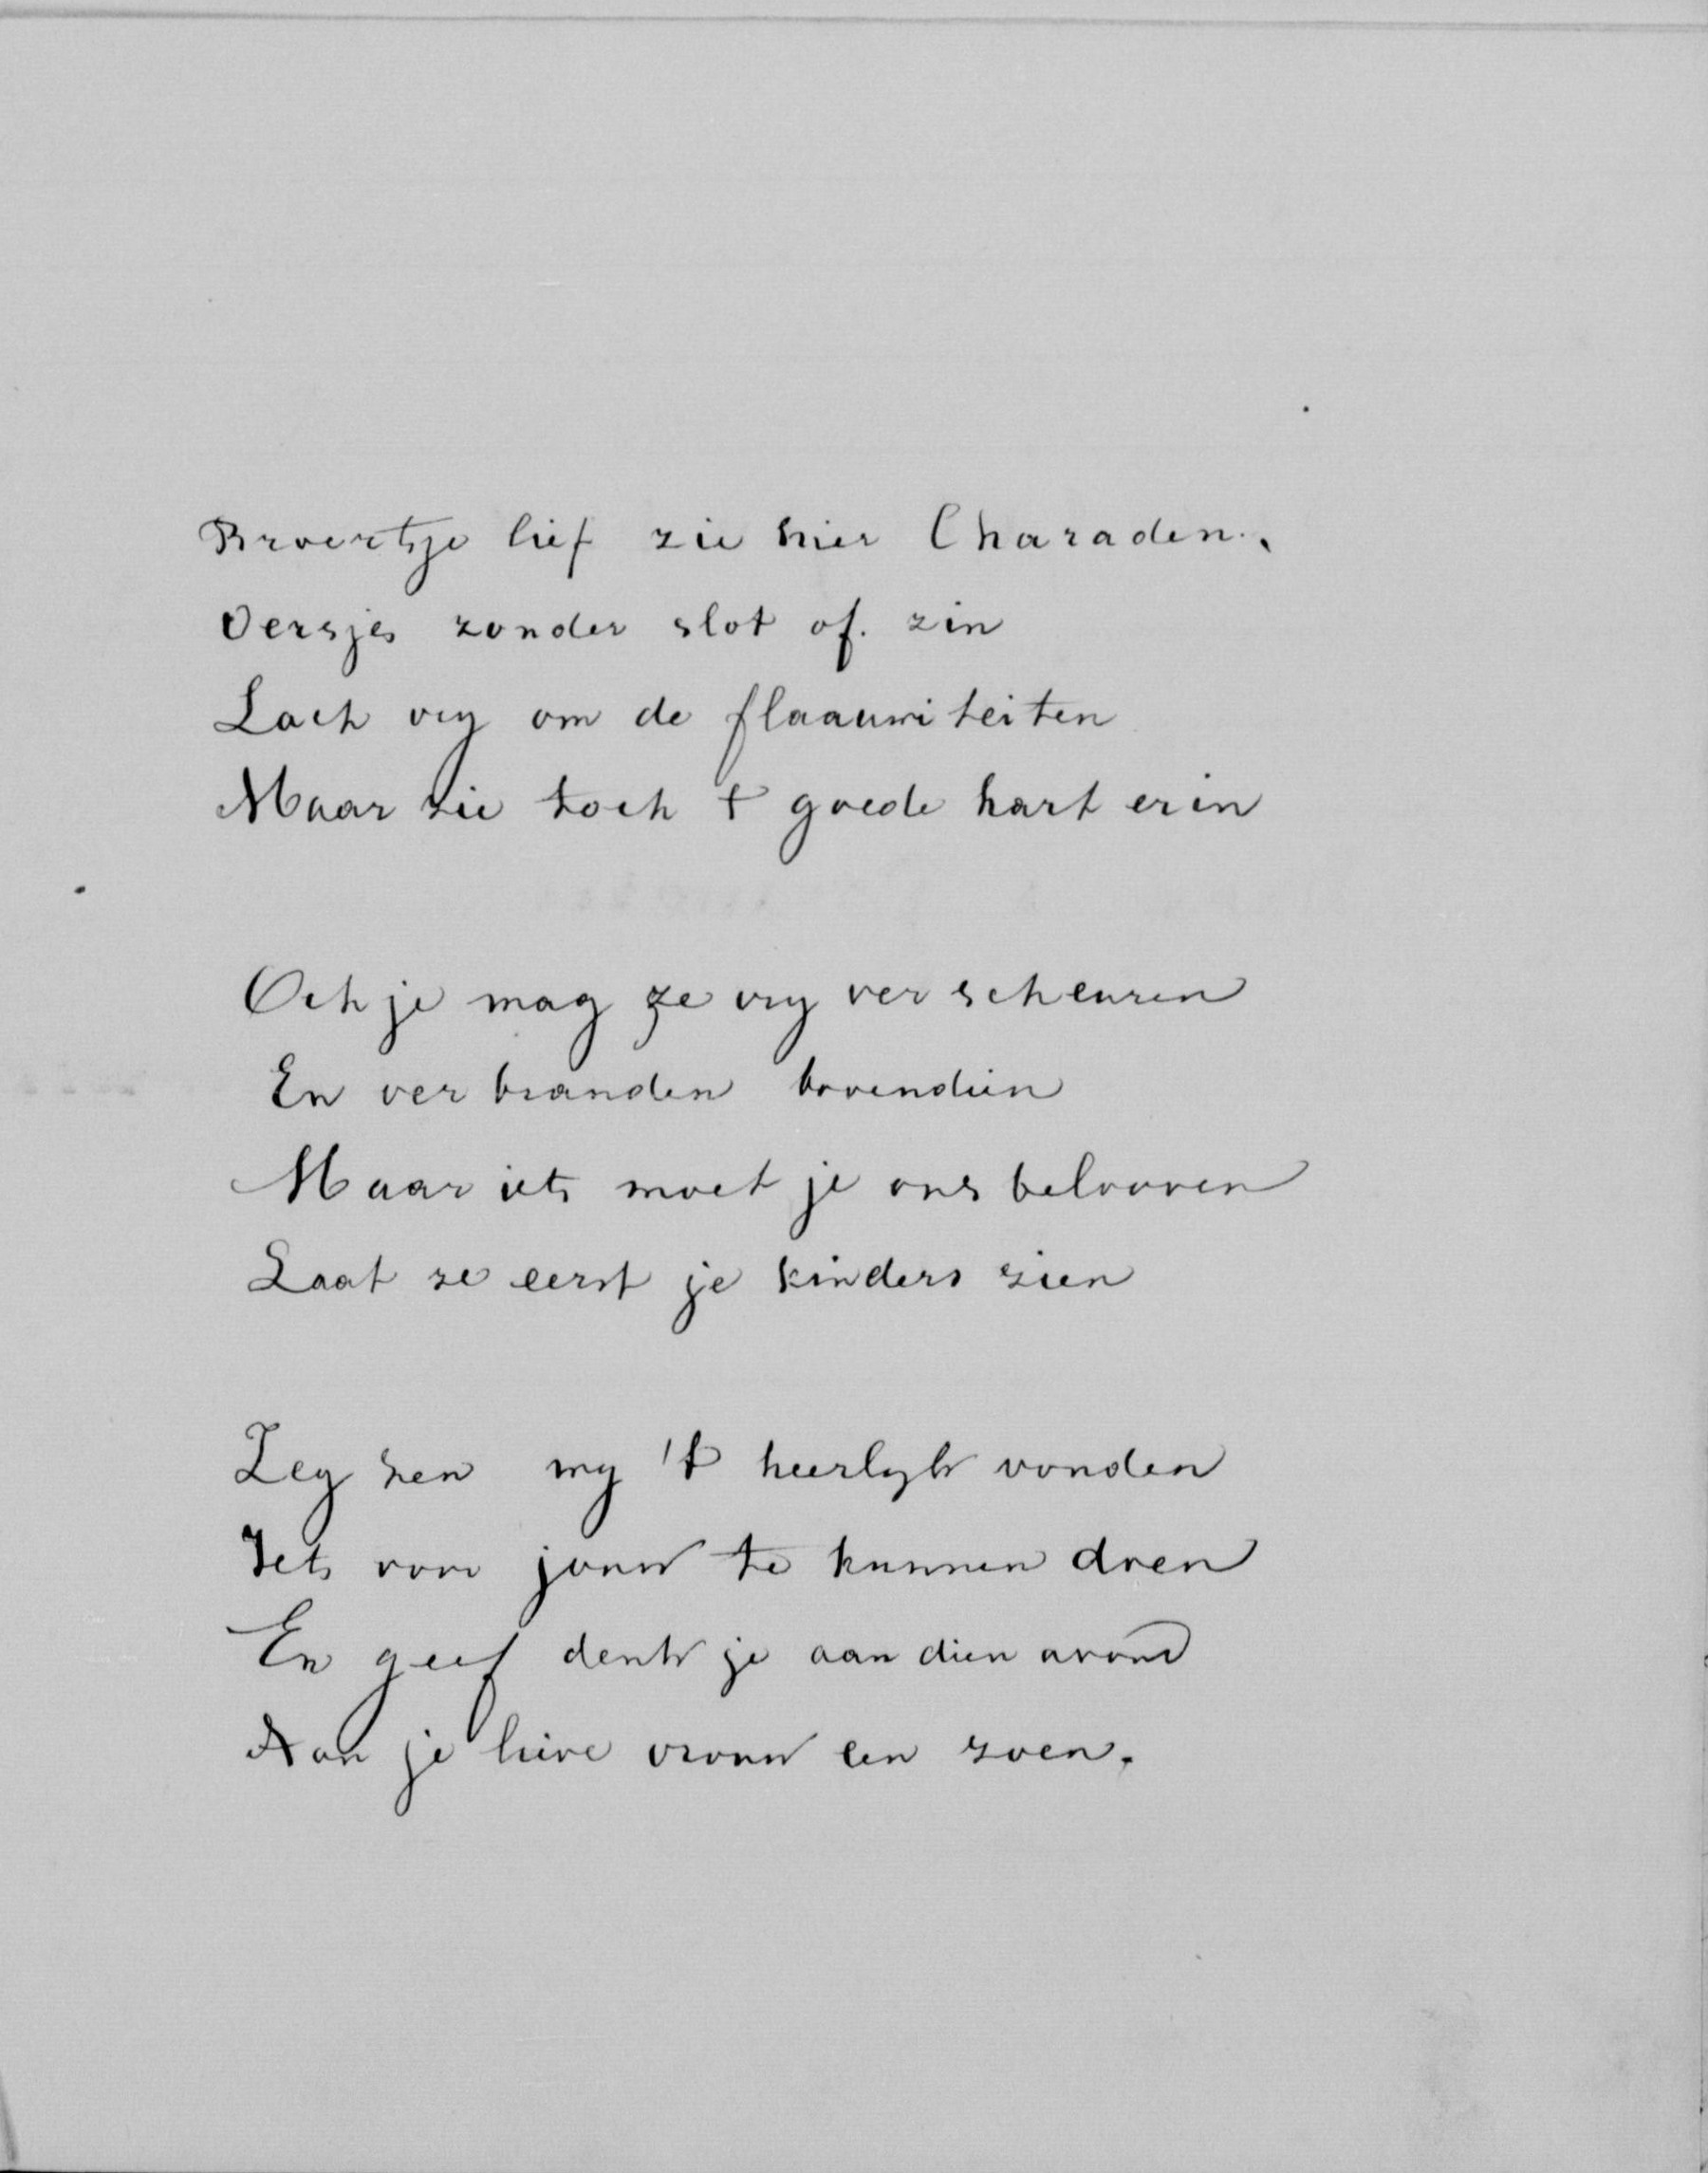 Broertje lief zie hier Charaden.
Versjes zonder slot of. zin
Lach vry om de flaauwiteiten
Maar zie toch t goede hart erin
Och je mag ze vry verscheuren
En verbranden bovendien
Maar iets moet je ons belooven
Laat ze eerst je kinders zien
Zeg hen wy 't heerlyk vonden
Iets voor jouw te kunnen doen
En geef denk je aan dien avond
Aan je lieve vrouw een zoen.